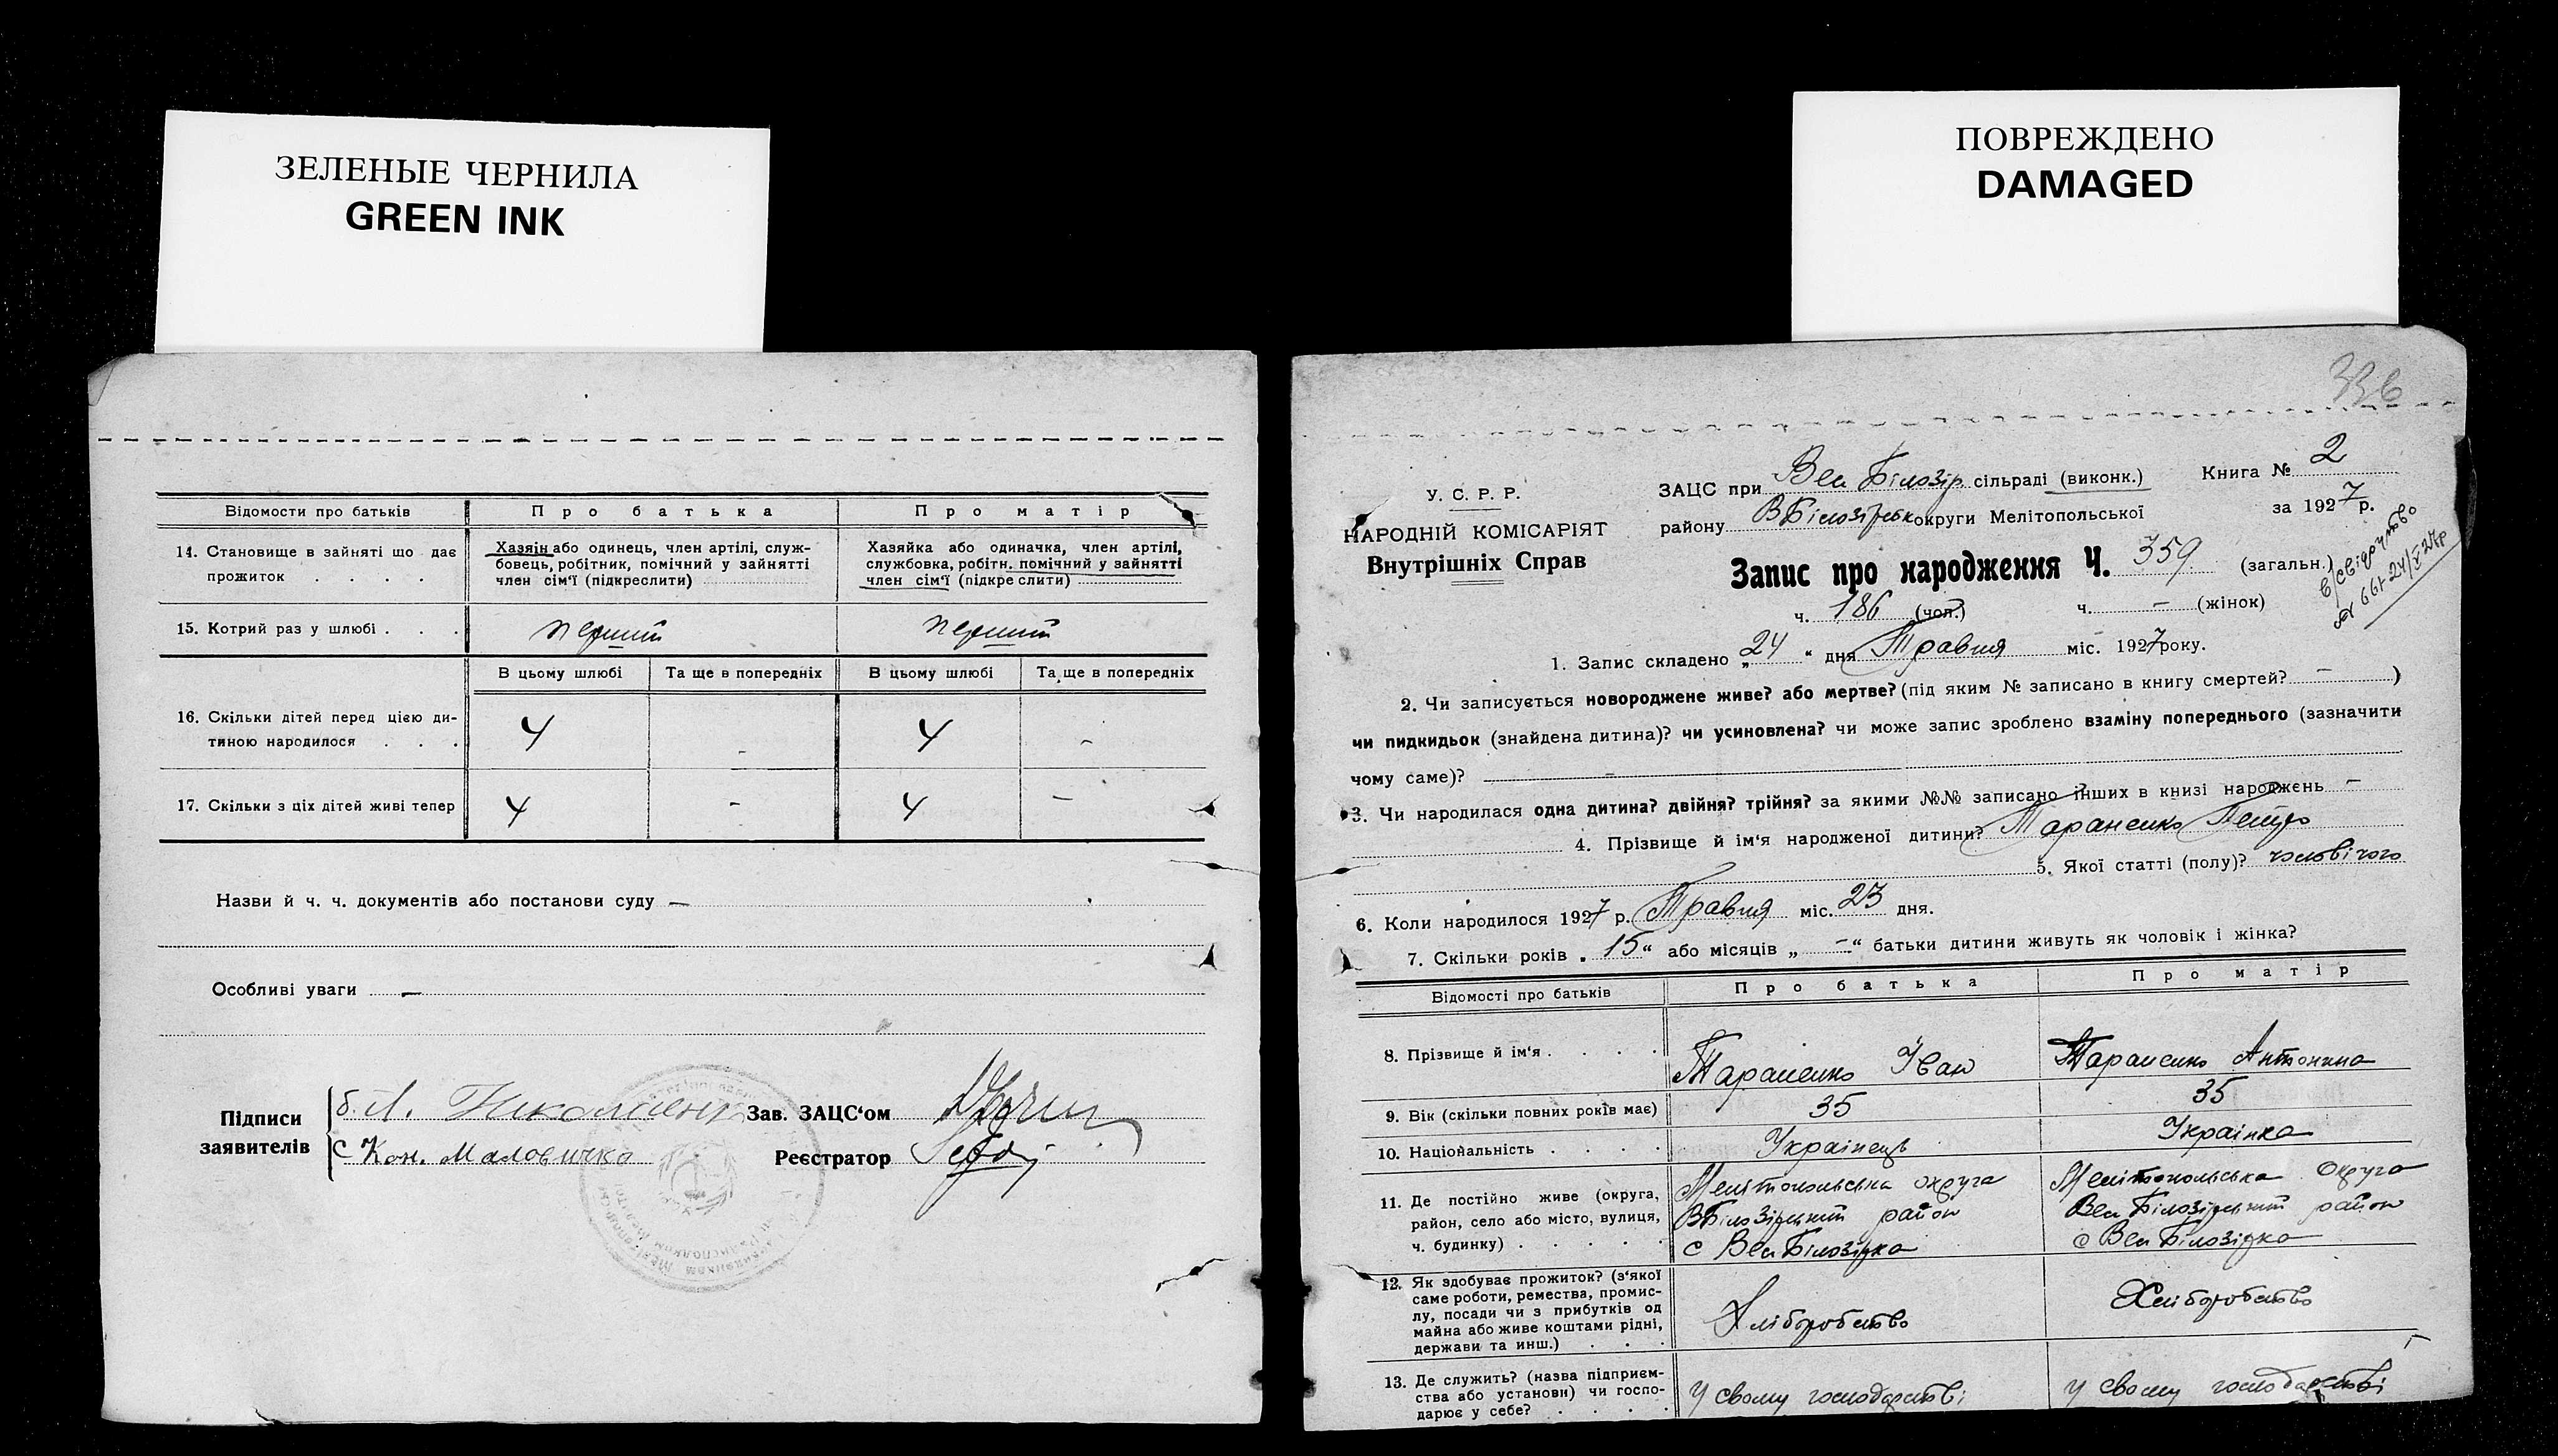 ЗЕЛЕНЫЕ ЧЕРНИЛА
GREEN INK
Відомости про батьків
Про батька
Про матір
14. Становище в зайняті що дає
прожиток . . . .
Хазяін або одинець, член артілі, служ-
бовець, робітник, помічний у зайнятті
член сім'ї (підкреслити)
Хазяйка або одиначка, член артілі,
службовка, робітн. помічний у зайнятті
член сім'ї (підкре слити)
15. Котрий раз у шлюбі . . .
перший
перший
В цьому шлюбі
Та ще в попередніх
В цьому шлюбі
Та ще в попередніх
16. Скільки дітей перед цією ди-
тиною народилося . . .
4
-
4
-
17. Скільки з ціх дітей живі тепер
4
-
4
-
Назви й ч. ч. документів або постанови суду —
Особливі уваги —
Підписи
заявителів
Кон. Маловичко
Зав. ЗАЦС'ом
Реєстратор
ПОВРЕЖДЕНО
DAMAGED
336
У. С. Р. Р.
НАРОДНІЙ КОМІСАРІЯТ
Внутрішніх Справ
ЗАЦС при Вел Білозір. сільраді (виконк.)
району ВБілозірськ округи Мелітопольської
Книга № 2
за 1927 р.
Запис про народження Ч. 359 (загальн.)
ч. 186 (чол.) ч. – (жінок)
1. Запис складено „24“ дня Травня міс. 1927 року.
2. Чи записується новороджене живе? або мертве? (під яким № записано в книгу смертей? – )
чи пидкидьок (знайдена дитина)? чи усиновлена? чи може запис зроблено взаміну попереднього (зазначити
чому саме)? –
3. Чи народилася одна дитина? двійня? трійня? за якими №№ записано інших в книзі народжень –
4. Прізвище й ім'я народженої дитини? Тараненко Петро
5. Якої статті (полу)? чоловічого
6. Коли народилося 1927 р. Травня міс. 23 дня.
7. Скільки років „15“ або місяців „–“ батьки дитини живуть як чоловік і жінка?
Відомості про батьків
Про батька
Про матір
8. Прізвище й ім'я . . . .
Тараненко Іван
Тараненко Антонина
9. Вік (скільки повних років має)
35
35
10. Національність . . . .
Українець
Українка
11. Де постійно живе (округа,
район, село або місто, вулиця,
ч. будинку) . . . . .
Мелітопольська округа
ВБілозірський район
с Вел Білозірка
Мелітопольська Округа
Вел Білозірський район
с Вел Білозірка
12. Як здобуває прожиток? (з'якої
саме роботи, ремества, промис-
лу, посади чи з прибутків од
майна або живе коштами рідні,
держави та инш.) . . .
Хліборобство
Хліборобство
13. Де служить? (назва підприєм-
ства або установи) чи госпо-
дарює у себе? . . . .
У свому господарстві
У свому господарстві